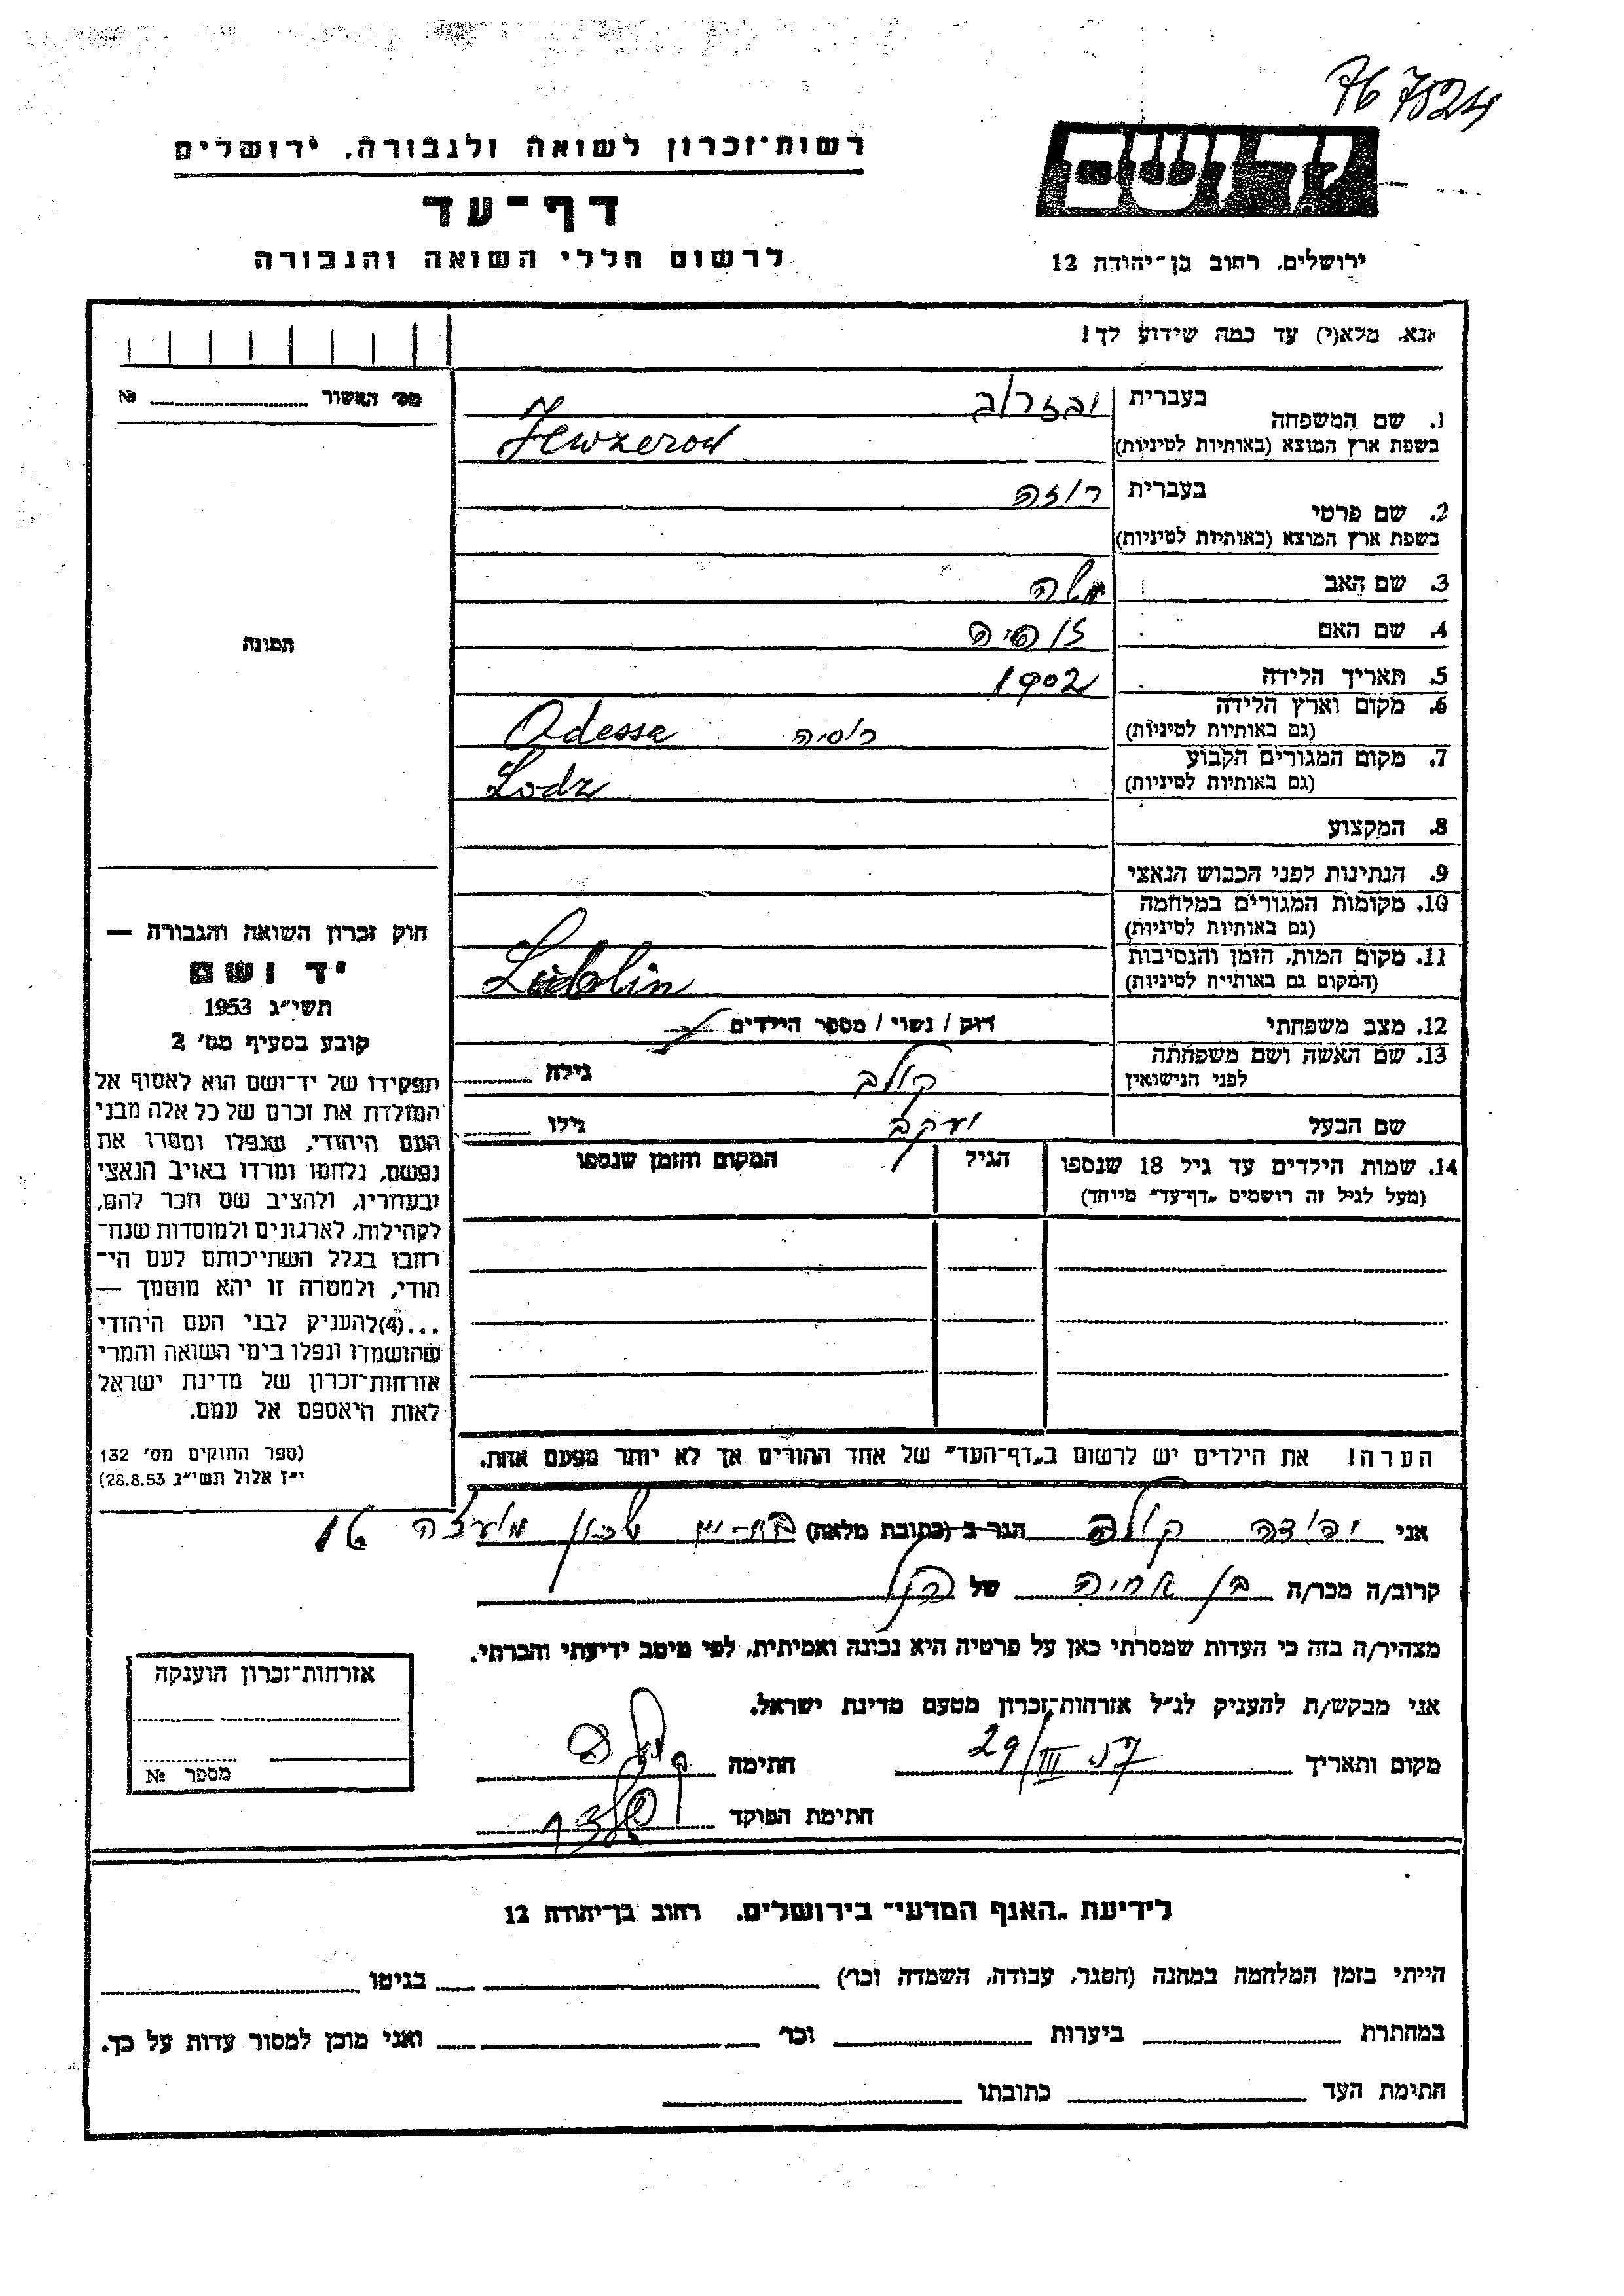 76 7824
רשות־זכרון לשואה ולגבורה, ירושלים
דף־עד
לרשום חללי השואה והגבורה
ידושם
ירושלים, רחוב בן־יהודה 12
אנא, מלא(י) עד כמה שידוע לך!
מס׳ האשור № 
1. שם המשפחה בעברית
בשפת ארץ המוצא (באותיות לטיניות)
2. שם פרטי בעברית רוזה
בשפת ארץ המוצא (באותיות לטיניות)
3. שם האב משה
4. שם האם
5. תאריך הלידה 1902
6. מקום וארץ הלידה
(גם באותיות לטיניות) רוסיה Odessa
7. מקום המגורים הקבוע
(גם באותיות לטיניות) Lodz
8. המקצוע
9. הנתינות לפני הכבוש הנאצי
10. מקומות המגורים במלחמה
(גם באותיות לטיניות)
11. מקום המות, הזמן והנסיבות
(המקום גם באותיית לטיניות) Lublin
12. מצב משפחתי רווק / נשוי / מספר הילדים
13. שם האשה ושם משפחתה
לפני הנישואין קולב גילה
שם הבעל יעקב גילו
14. שמות הילדים עד גיל 18 שנספו
(מעל לגיל זה רושמים „דף־עד״ מיוחד)
הגיל
המקום והזמן שנספו
תמונה
חוק זכרון השואה והגבורה —
יד ושם
תשי״ג 1953
קובע בסעיף מס׳ 2
תפקידו של יד־ושם הוא לאסוף אל
המולדת את זכרם של כל אלה מבני
העם היהודי, שנפלו ומסרו את
נפשם, נלחמו ומרדו באויב הנאצי
ובעוזריו, ולהציב שם וזכר להם,
לקהילות, לארגונים ולמוסדות שנח־
רחבו בגלל השתייכותם לעם הי־
הודי, ולמטרה זו יהא מוסמך —
...(4)להעניק לבני העם היהודי
שהושמדו ונפלו בימי השואה והמרי
אזרחות־זכרון של מדינת ישראל
לאות היאספם אל עמם.
(ספר החוקים מס׳ 132
י״ז אלול תשי״ג 28.8.53)
הערה! את הילדים יש לרשום ב„דף־העד״ של אחד ההורים אך לא יותר מפעם אחת.
אני יהודה קולב הגר ב (כתובת מלאה) בת-ים שכון 16
קרוב/ה מכר/ה בן אחיה של הנ״ל
מצהיר/ה בזה כי העדות שמסרתי כאן על פרטיה היא נכונה ואמיתית, לפי מיטב ידיעתי והכרתי.
אני מבקש/ת להעניק לנ״ל אזרחות־זכרון מטעם מדינת ישראל.
מקום ותאריך 29/III 57 חתימה
חתימת הפוקד
אזרחות־זכרון הוענקה
מספר №
לידיעת „האגף המדעי״ בירושלים, רחוב בן־יהודה 12
הייתי בזמן המלחמה במחנה (הסגר, עבודה, השמדה וכו׳) בגיטו
במחתרת ביערות וכו׳ ואני מוכן למסור עדות על כך.
חתימת העד כתובתו